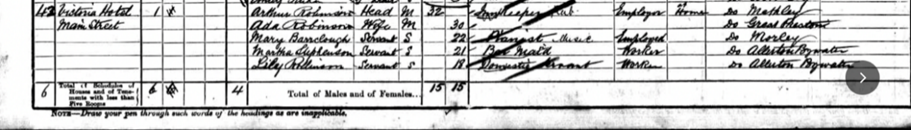 152 Victoria Hotel 1 Arthur Robinson Head M 32 Innkeeper Pub Employer Home Do Methley
Main Street Ada Robinson Wife M 30 Do Great Preston
Mary Barrclough Servant S 22 Pianist Music Employed Do Morley
Martha Stephenson Servant S 21 Bar Maid Worker Do Allerton Bywater
Lily Robinson Servant S 18 Domestic Servant Worker Do Allerton Bywater
6 Total of Schedules of Houses and of Tenements with less than Five Rooms 6 4 Total of Males and of Females... 15 15
NOTE—Draw your pen through such words of the headings as are inapplicable.